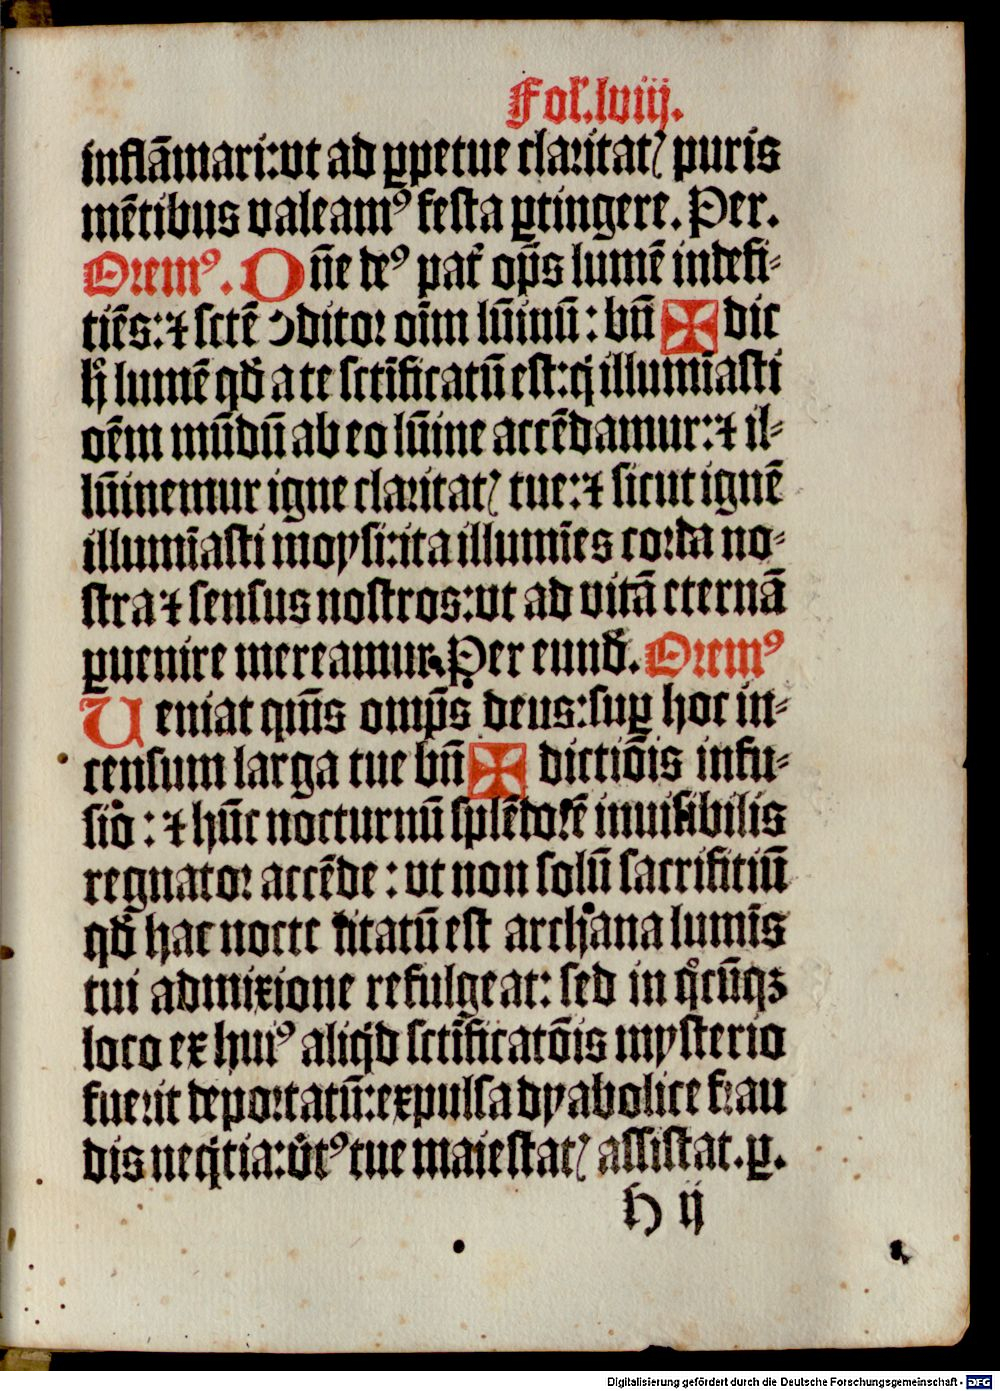 Fol̛.lviij.
inflāmari:vt ad ꝑpetue claꝛitatꝭ puris
mētibus valeamꝰ festa ꝑtingere. Per.
Oꝛemꝰ. Oñe deꝰ pat̛ op̄s lumē indefi⸗
tiēs:⁊ sctē ꝯditoꝛ oīm lūinū: bn̄ ✠ dic
hͦ lumē qđ a te sctīficatū est:q̇ illumīasti
oēm mūdū ab eo lūine accēdamur:⁊ il⸗
lūinemur igne claꝛitatꝭ tue:⁊ sicut ignē
illumīasti moysi:ita illumīes coꝛda no⸗
stra ⁊ sensus nostros:vt ad vitā eternā
ꝑuenire mereamur. Per eunđ. Oꝛemꝰ
Ueniat qm̄s omp̄s deus:suꝑ hoc in⸗
censum larga tue bn̄ ✠ dictiōis infu⸗
sio: ⁊ hūc nocturnū splēdoꝛē inuisibilis
regnatoꝛ accēde: vt non solū sacrifitiū
qđ hac nocte litatū est archana lumīs
tui admixione refulgeat: sed in qͦcūqꝫ
loco ex huiꝰ aliqd sctīficatōis mysterio
fueꝛit depoꝛtatū:expulsa dyabolice fꝛau
dis neq̇tia:v̛tꝰ tue maiestatꝭ assistat. ꝑ.
h ij
Digitalisierung gefördert durch die Deutsche Forschungsgemeinschaft - DFG